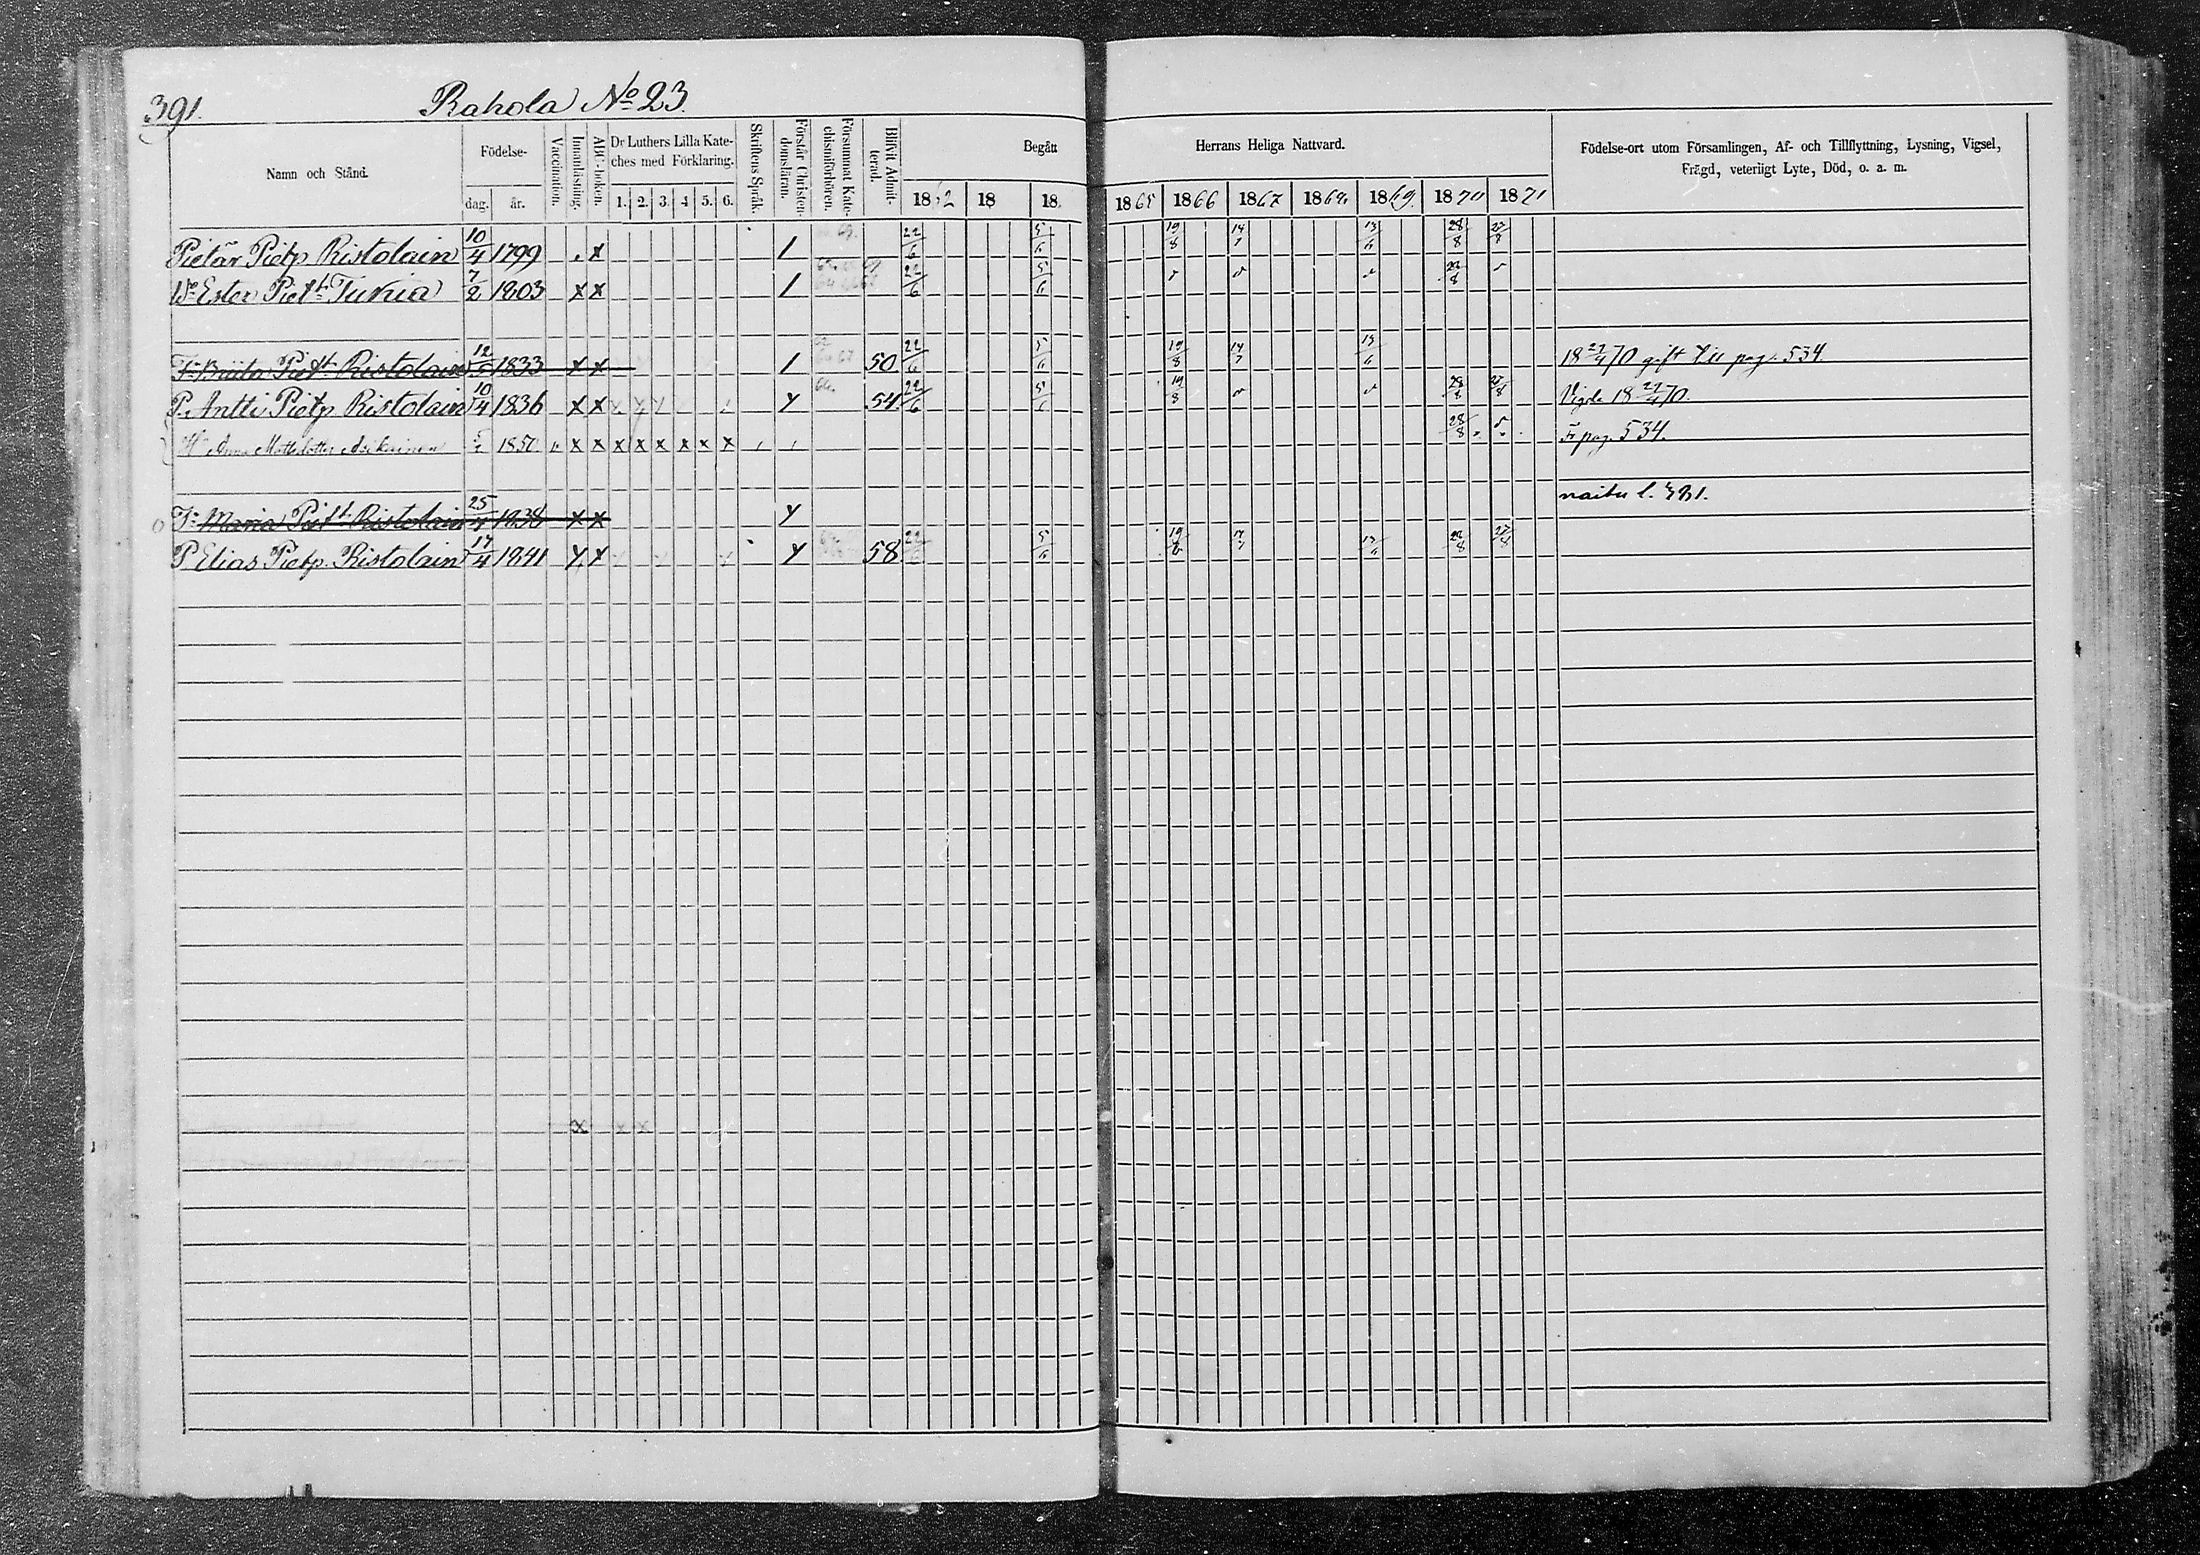 391. Rahola No 23.
Namn och Stånd. Födelse- dag. år. Vaccination. Innanläsning. ABC-boken. Dr Luthers Lilla Kateches med Förklaring. 1. 2. 3. 4 5. 6. Skriftens Språk. Förstår Christendomsläran. Försummat Katechismiförhören. Blifvit Admitterad. Begått Herrans Heliga Nattvard. Födelse-ort utom Församlingen, Af- och Tillflyttning, Lysning, Vigsel, Frägd, veterligt Lyte, Död, o. a. m.
1862 18 18. 1865 1866 1867 1868 1869 1870 1871
Pietär Pietp Ristolain 10/4 1799 x 1 22/6 5/6 19/8 14/7 13/6 28/8 27/8
Ester Piet. Turkia 7/2 1803 x x 1 22/6 5/6 28/8
Fr Briita Piet. Ristolain 12/5 1833 x x 1 50 22/6 5/6 19/8 14/7 13/6 18 27/4 70 gift till pag. 534.
P. Antti Pietp Ristolain 10/4 1836 x x 54 22/6 5/6 19/8 28/8 27/8 Vigde 18 27/4 70.
Anna Mattsdotter Asikainen 1850. x x x x x x x x 28/8 Fr pag. 534.
Maria Piet. Ristolain 25/4 1838 x x naitu l.
P Elias Pietp. Ristolain 17/4 1841 58 22/6 5/6 19/8 14/7 13/6 28/8 27/8
x x x